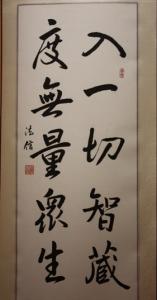 入一切智藏
度無量眾生
法信